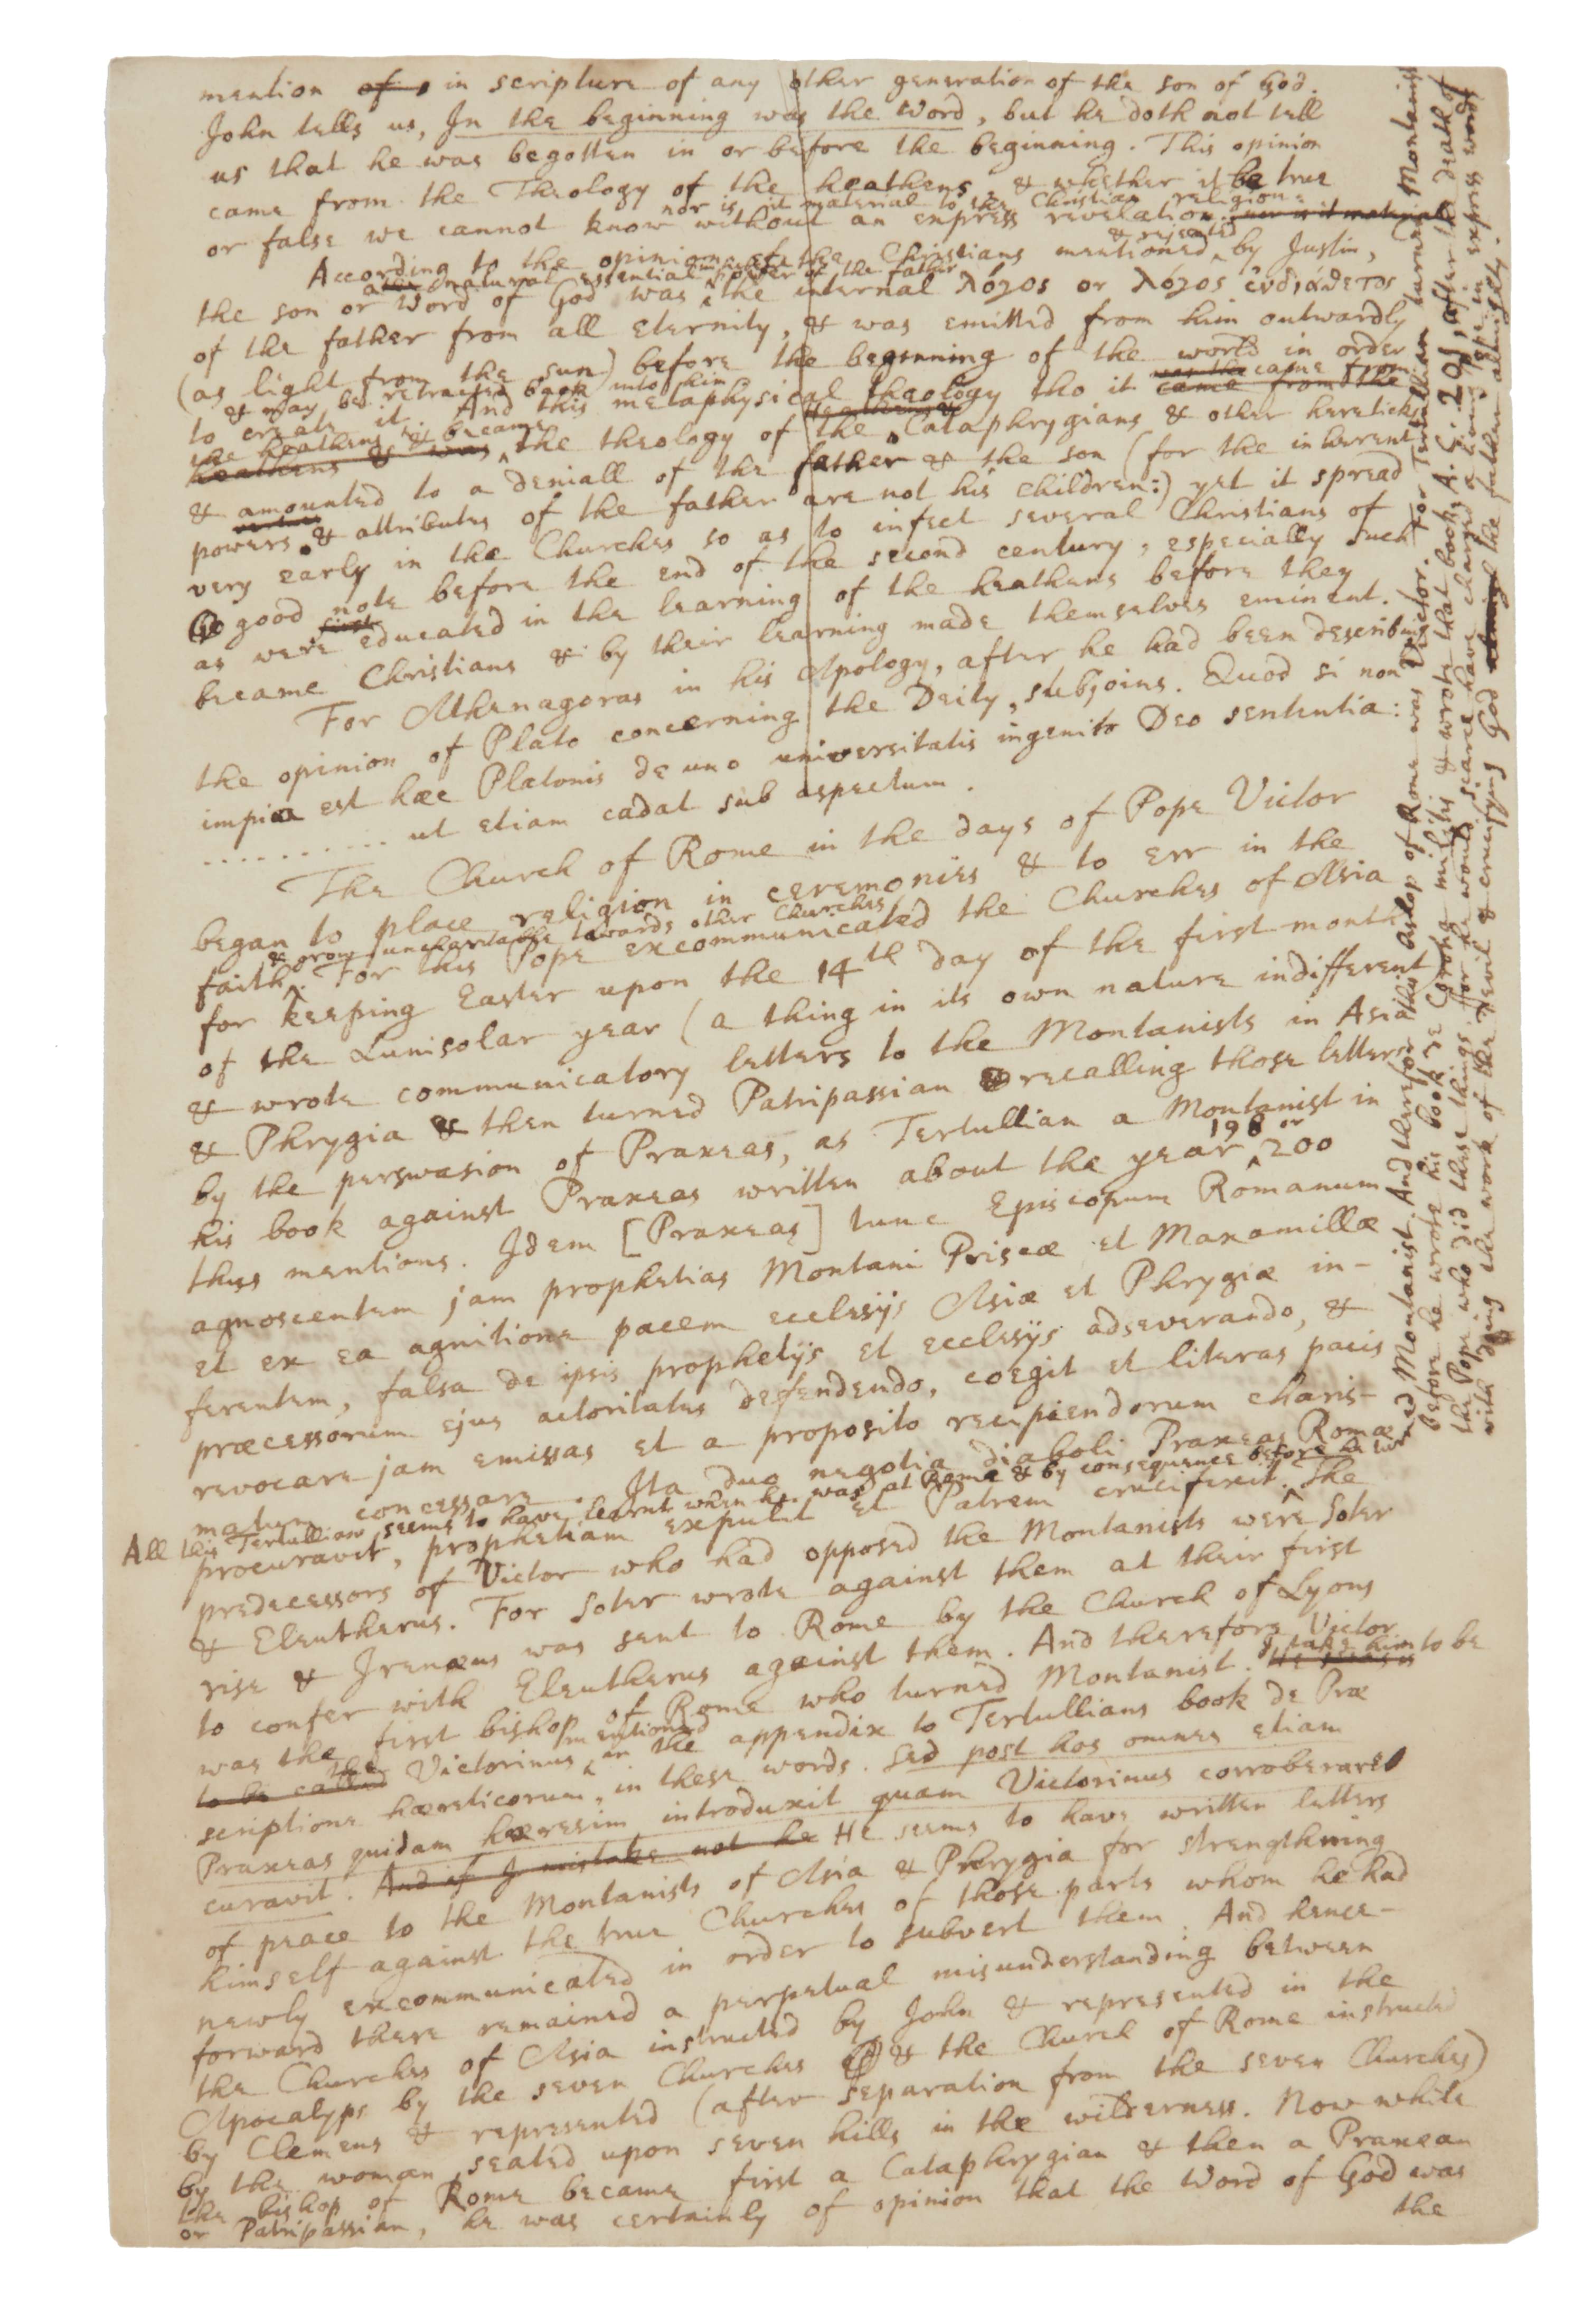 mention of in scripture of any other generation of the son of God.
John tells us, In the beginning was the Word, but he doth not tell
us that he was begotten in or before the beginning. This opinion
came from the Theology of the heathens, & whether it be true
nor is it material to the Christian religion:
or false we cannot know without an express revelation. nor is it material
& rejected
According to the opinion of the Christians mentioned by Justin,
natural essential power of the father
the son or Word of God was the internal λόγος or λόγος ἐνδιάθετος
of the father from all eternity, & was emitted from him outwardly
(as light from the sun) before the beginning of the world in order
& may be retracted back into him
to create it. And this metaphysical theology tho it came from the
came from
the heathens yet became
heathens & was the theology of the Cataphrygians & other hereticks
& amounted to a deniall of the father & the son (for the inherent
powers & attributes of the father are not his children:) yet it spread
very early in the Churches so as to infect several Christians of
good note before the end of the second century, especially such
as were first educated in the learning of the heathens before they
became Christians & by their learning made themselves eminent.
For Athenagoras in his Apology, after he had been describing
the opinion of Plato concerning the Deity, subjoins. Quod si non
impia est hæc Platonis de uno universitatis ingenito Deo sententia:
. . . . . . . . . . ut etiam cadat sub aspectum.
The Church of Rome in the days of Pope Victor
began to place religion in ceremonies & to err in the
& grow uncharitable towards other Churches
faith. For this Pope excommunicated the Churches of Asia
for keeping Easter upon the 14th day of the first month
of the Lunisolar year (a thing in its own nature indifferent)
& wrote communicatory letters to the Montanists in Asia
& Phrygia & then turned Patripassian recalling those letters
by the perswasion of Praxeas, as Tertullian a Montanist in
198 or
his book against Praxeas written about the year 200
thus mentions. Idem [Praxeas] tunc Episcopum Romanum
agnoscentem jam prophetias Montani Priscæ et Maxamillæ
et ex ea agnitione pacem ecclesijs Asiæ et Phrygiæ in-
ferentem, falsa de ipsis prophetijs et ecclesijs adseverando, &
præcessorum ejus actoritates defendendo, coegit et literas pacis
revocare jam emissas et a proposito recipiendorum charis-
matum concessare. Ita duo negotia diaboli Praxeas Romæ
All this Tertullian seems to have learnt when he was at Rome & by consequence before he turned Montanist. And therefore this bishop of Rome was Victor. For Tertullian turned Montanist
before he wrote his book de Corona militis & wrote that book A.C. 201, after the death of
the Pope who did these things. For he would scarce have charged a living Pope in express words
with doing the work of the Devil & crucifying God almigh the father almighty.
procuravit, prophetiam expulit et Patrem crucifixit. The
predecessors of Victor who had opposed the Montanists were Soter
& Eleutherus. For Soter wrote against them at their first
rise & Irenæus was sent to Rome by the Church of Lyons
to confer with Eleutherus against them. And therefore Victor
I take him to be
was the first bishop of Rome who turned Montanist. He seems
mentioned
to be called the Victorinus in the appendix to Tertullians book de Præ
scriptione hæreticorum, in these words. Sed post hos omnes etiam
Praxeas quidam hæresim introduxit quam Victorinus corroborare
curavit. And if I mistake not he He seems to have written letters
of peace to the Montanists of Asia & Phrygia for strengthning
himself against the true Churches of those parts whom he had
newly excommunicated in order to subvert them. And hence-
forward there remained a perpetual misunderstanding between
the Churches of Asia instructed by John & represented in the
Apocalyps by the seven Churches & the Church of Rome instructed
by Clemens & represented (after separation from the seven Churches)
by the woman seated upon seven hills in the wilderness. Now while
the bishop of Rome became first a Cataphrygian & then a Praxean
or Patripassian, he was certainly of opinion that the Word of God was
the